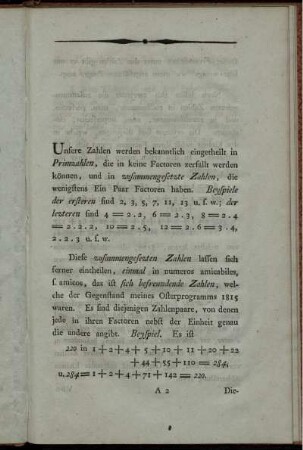 Unsere Zahlen werden bekanntlich eingetheilt in
Primzahlen, die in keine Factoren zerfällt werden
können, und in zusammengesetzte Zahlen, die
wenigstens Ein Paar Factoren haben. Beyspiele
der ersteren sind 2, 3, 5, 7, 11, 13 u. s. w.; der
letzteren sind 4 = 2.2, 6 = 2.3, 8 = 2.4
= 2.2.2, 10 = 2.5, 12 = 2.6 = 3.4,
2.2.3 u. s. w.
Diese zusammengesetzten Zahlen lassen sich
ferner eintheilen, einmal in numeros amicabiles,
s. amicos, das ist sich befreundende Zahlen, wel-
che der Gegenstand meines Osterprogramms 1815
waren. Es sind diejenigen Zahlenpaare, von denen
jede in ihren Factoren nebst der Einheit genau
die andere angibt. Beyspiel. Es ist
220 in 1+2+4+5+10+11+20+22
+44+55+110 = 284,
u. 284 = 1+2+4+71+142 = 220.
A 2 Die-